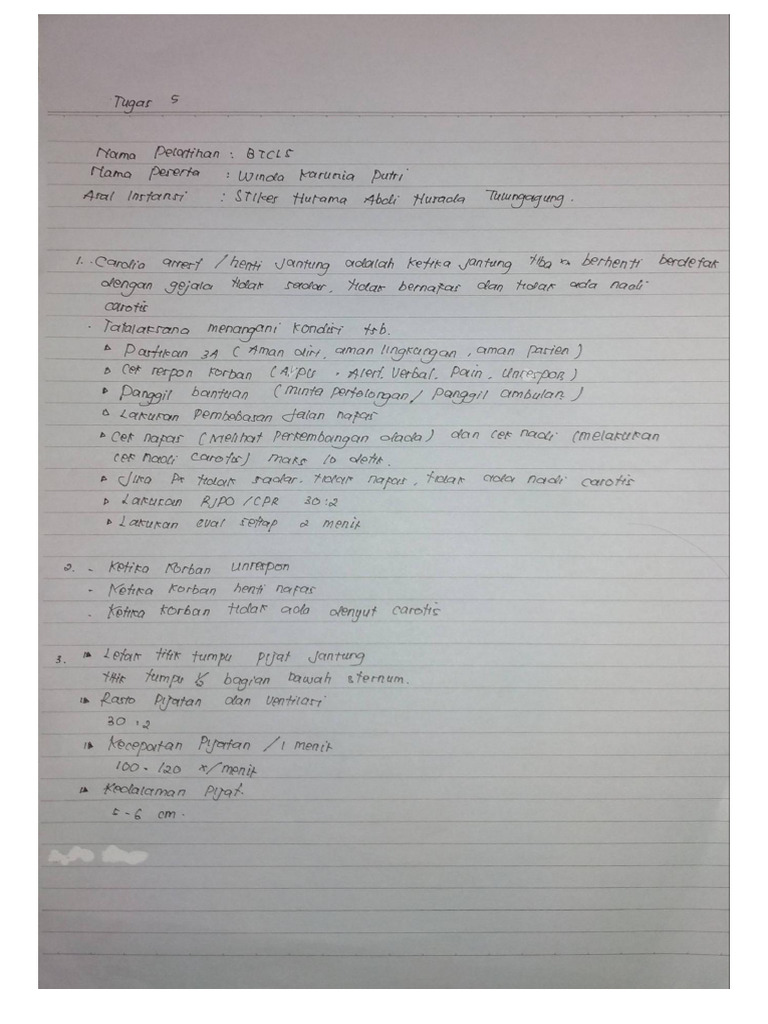 Tugas 5
Nama Pelatihan : BTCLS
Nama Peserta : Winda Karunia Putri
Asal Instansi : STIKes Hutama Abdi Husada Tulungagung.
1. - Cardia arrest / henti jantung adalah ketika jantung tiba" berhenti berdetak
dengan gejala tidak sadar, tidak bernapas dan tidak ada nadi
carotis
- Tatalaksana menangani kondisi tsb.
▹ Pastikan 3A (Aman diri, aman lingkungan, aman pasien)
▹ Cek respon korban (AVPU : Alert, Verbal, Pain, Unrespon)
▹ Panggil bantuan (minta pertolongan / panggil ambulan)
▹ Lakukan Pembebasan Jalan napas
▹ Cek napas (Melihat Perkembangan dada) dan cek nadi (melakukan
cek nadi carotis) maks 10 detik.
▹ Jika Px tidak sadar, tidak napas, tidak ada nadi carotis
▹ Lakukan RJPO / CPR 30:2
▹ Lakukan eval setiap 2 menit
2. - Ketika korban unrespon
- Ketika korban henti napas
- Ketika korban tidak ada denyut carotis
3. Letak titik tumpu pijat jantung
titik tumpu bagian bawah sternum.
Rasio Pijatan dan ventilasi
30 : 2
Kecepatan Pijatan / 1 menit
100 - 120 x/menit
Kedalaman Pijat.
5 - 6 cm.